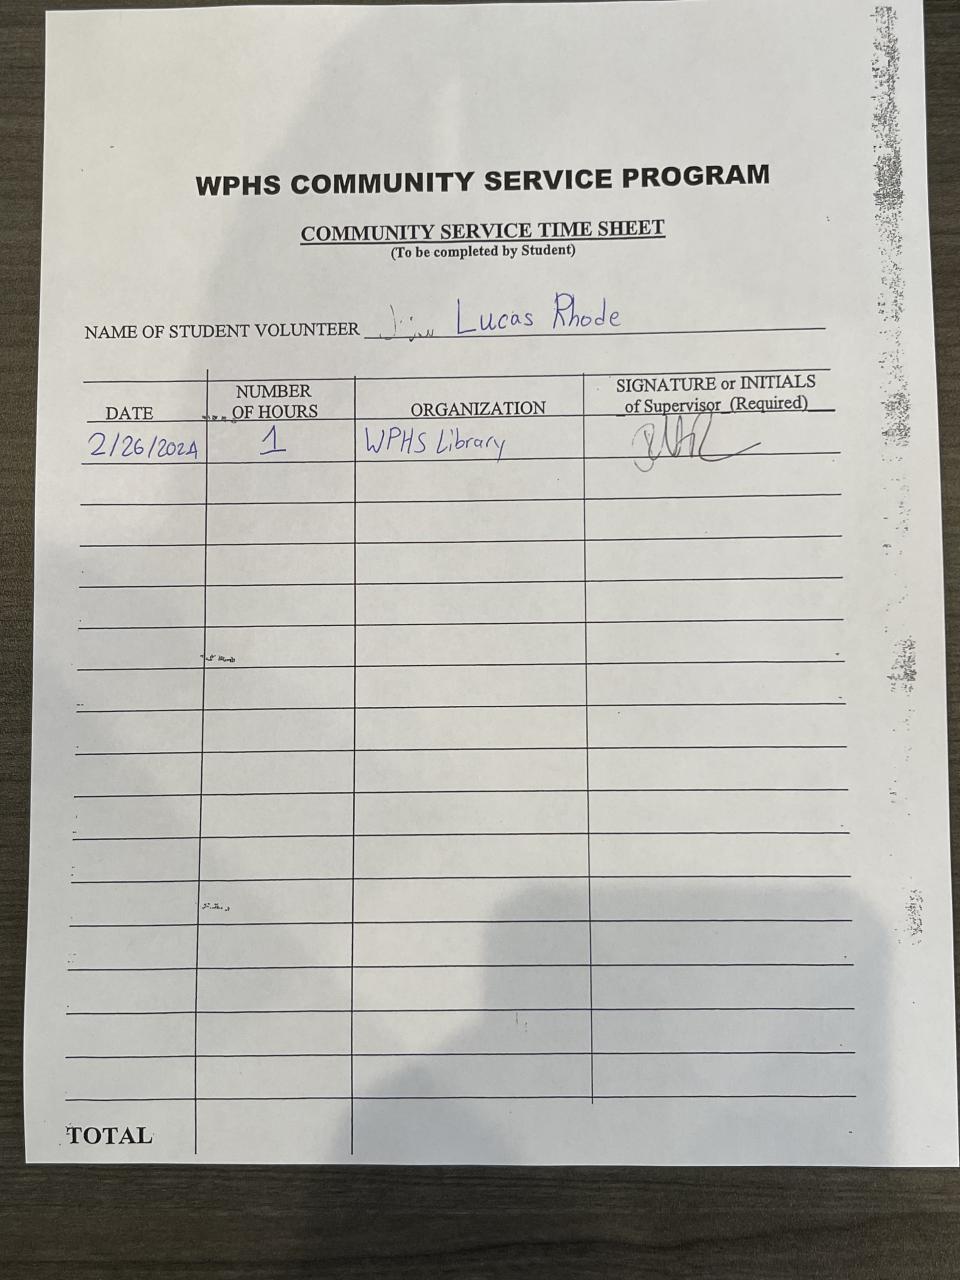 WPHS COMMUNITY SERVICE PROGRAM
COMMUNITY SERVICE TIME SHEET
(To be completed by Student)
NAME OF STUDENT VOLUNTEER Lucas Rhode
DATE NUMBER OF HOURS ORGANIZATION SIGNATURE or INITIALS of Supervisor (Required)
2/26/2024 1 WPHS Library
TOTAL